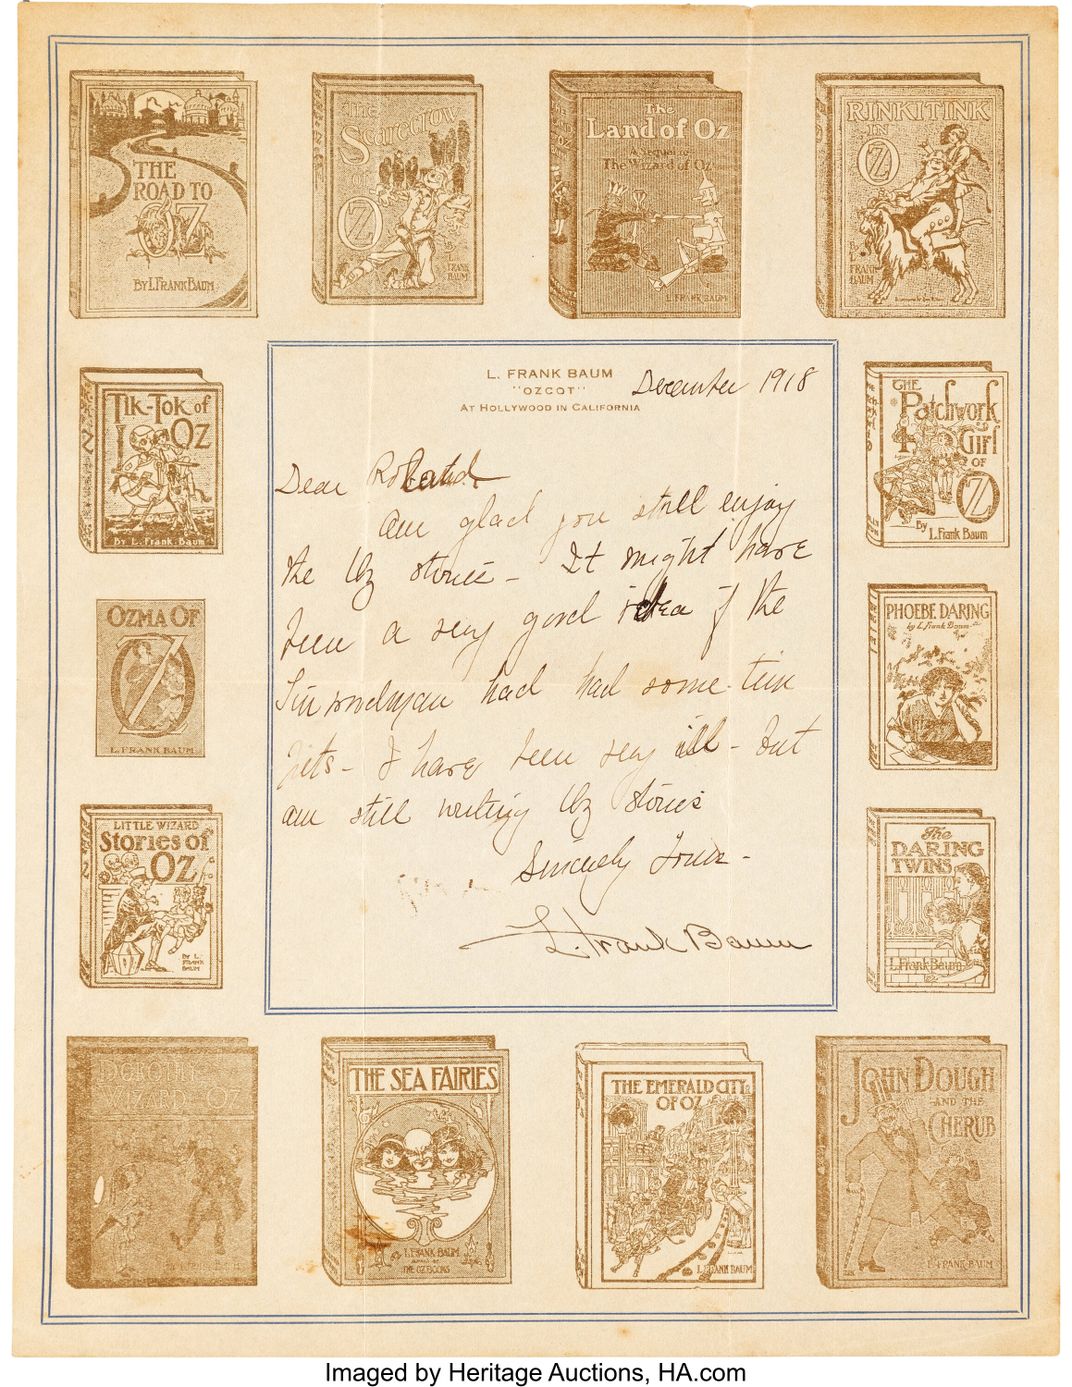 THE
ROAD TO
OZ
BY L. FRANK BAUM
The
Scarecrow
OF
OZ
BY
L.
FRANK
BAUM
The
Land of Oz
A Sequel to
The Wizard of Oz
L. FRANK BAUM
RINKITINK
IN
OZ
BY
L.
FRANK
BAUM
TIK-TOK of
OZ
By L. Frank Baum
L. FRANK BAUM
"OZCOT"
AT HOLLYWOOD IN CALIFORNIA
December 1918
THE
Patchwork
Girl
OF
OZ
By
L. FRANK BAUM
Dear Roland
Am glad you still enjoy
the Oz stories - It might have
been a very good idea if the
Tin woodman had had some tin
pets - I have been very ill - but
am still writing Oz stories
Sincerely Yours -
L. Frank Baum
OZMA OF
OZ
L. FRANK BAUM
PHOEBE DARING
by L. Frank Baum
LITTLE WIZARD
Stories of
OZ
BY
L.
FRANK
BAUM
The
DARING
TWINS
L. Frank Baum
WIZARD OZ
THE SEA FAIRIES
L. FRANK BAUM
THE OZ BOOKS
THE EMERALD CITY
OF OZ
L. FRANK BAUM
JOHN DOUGH
AND THE
CHERUB
L. FRANK BAUM
Imaged by Heritage Auctions, HA.com